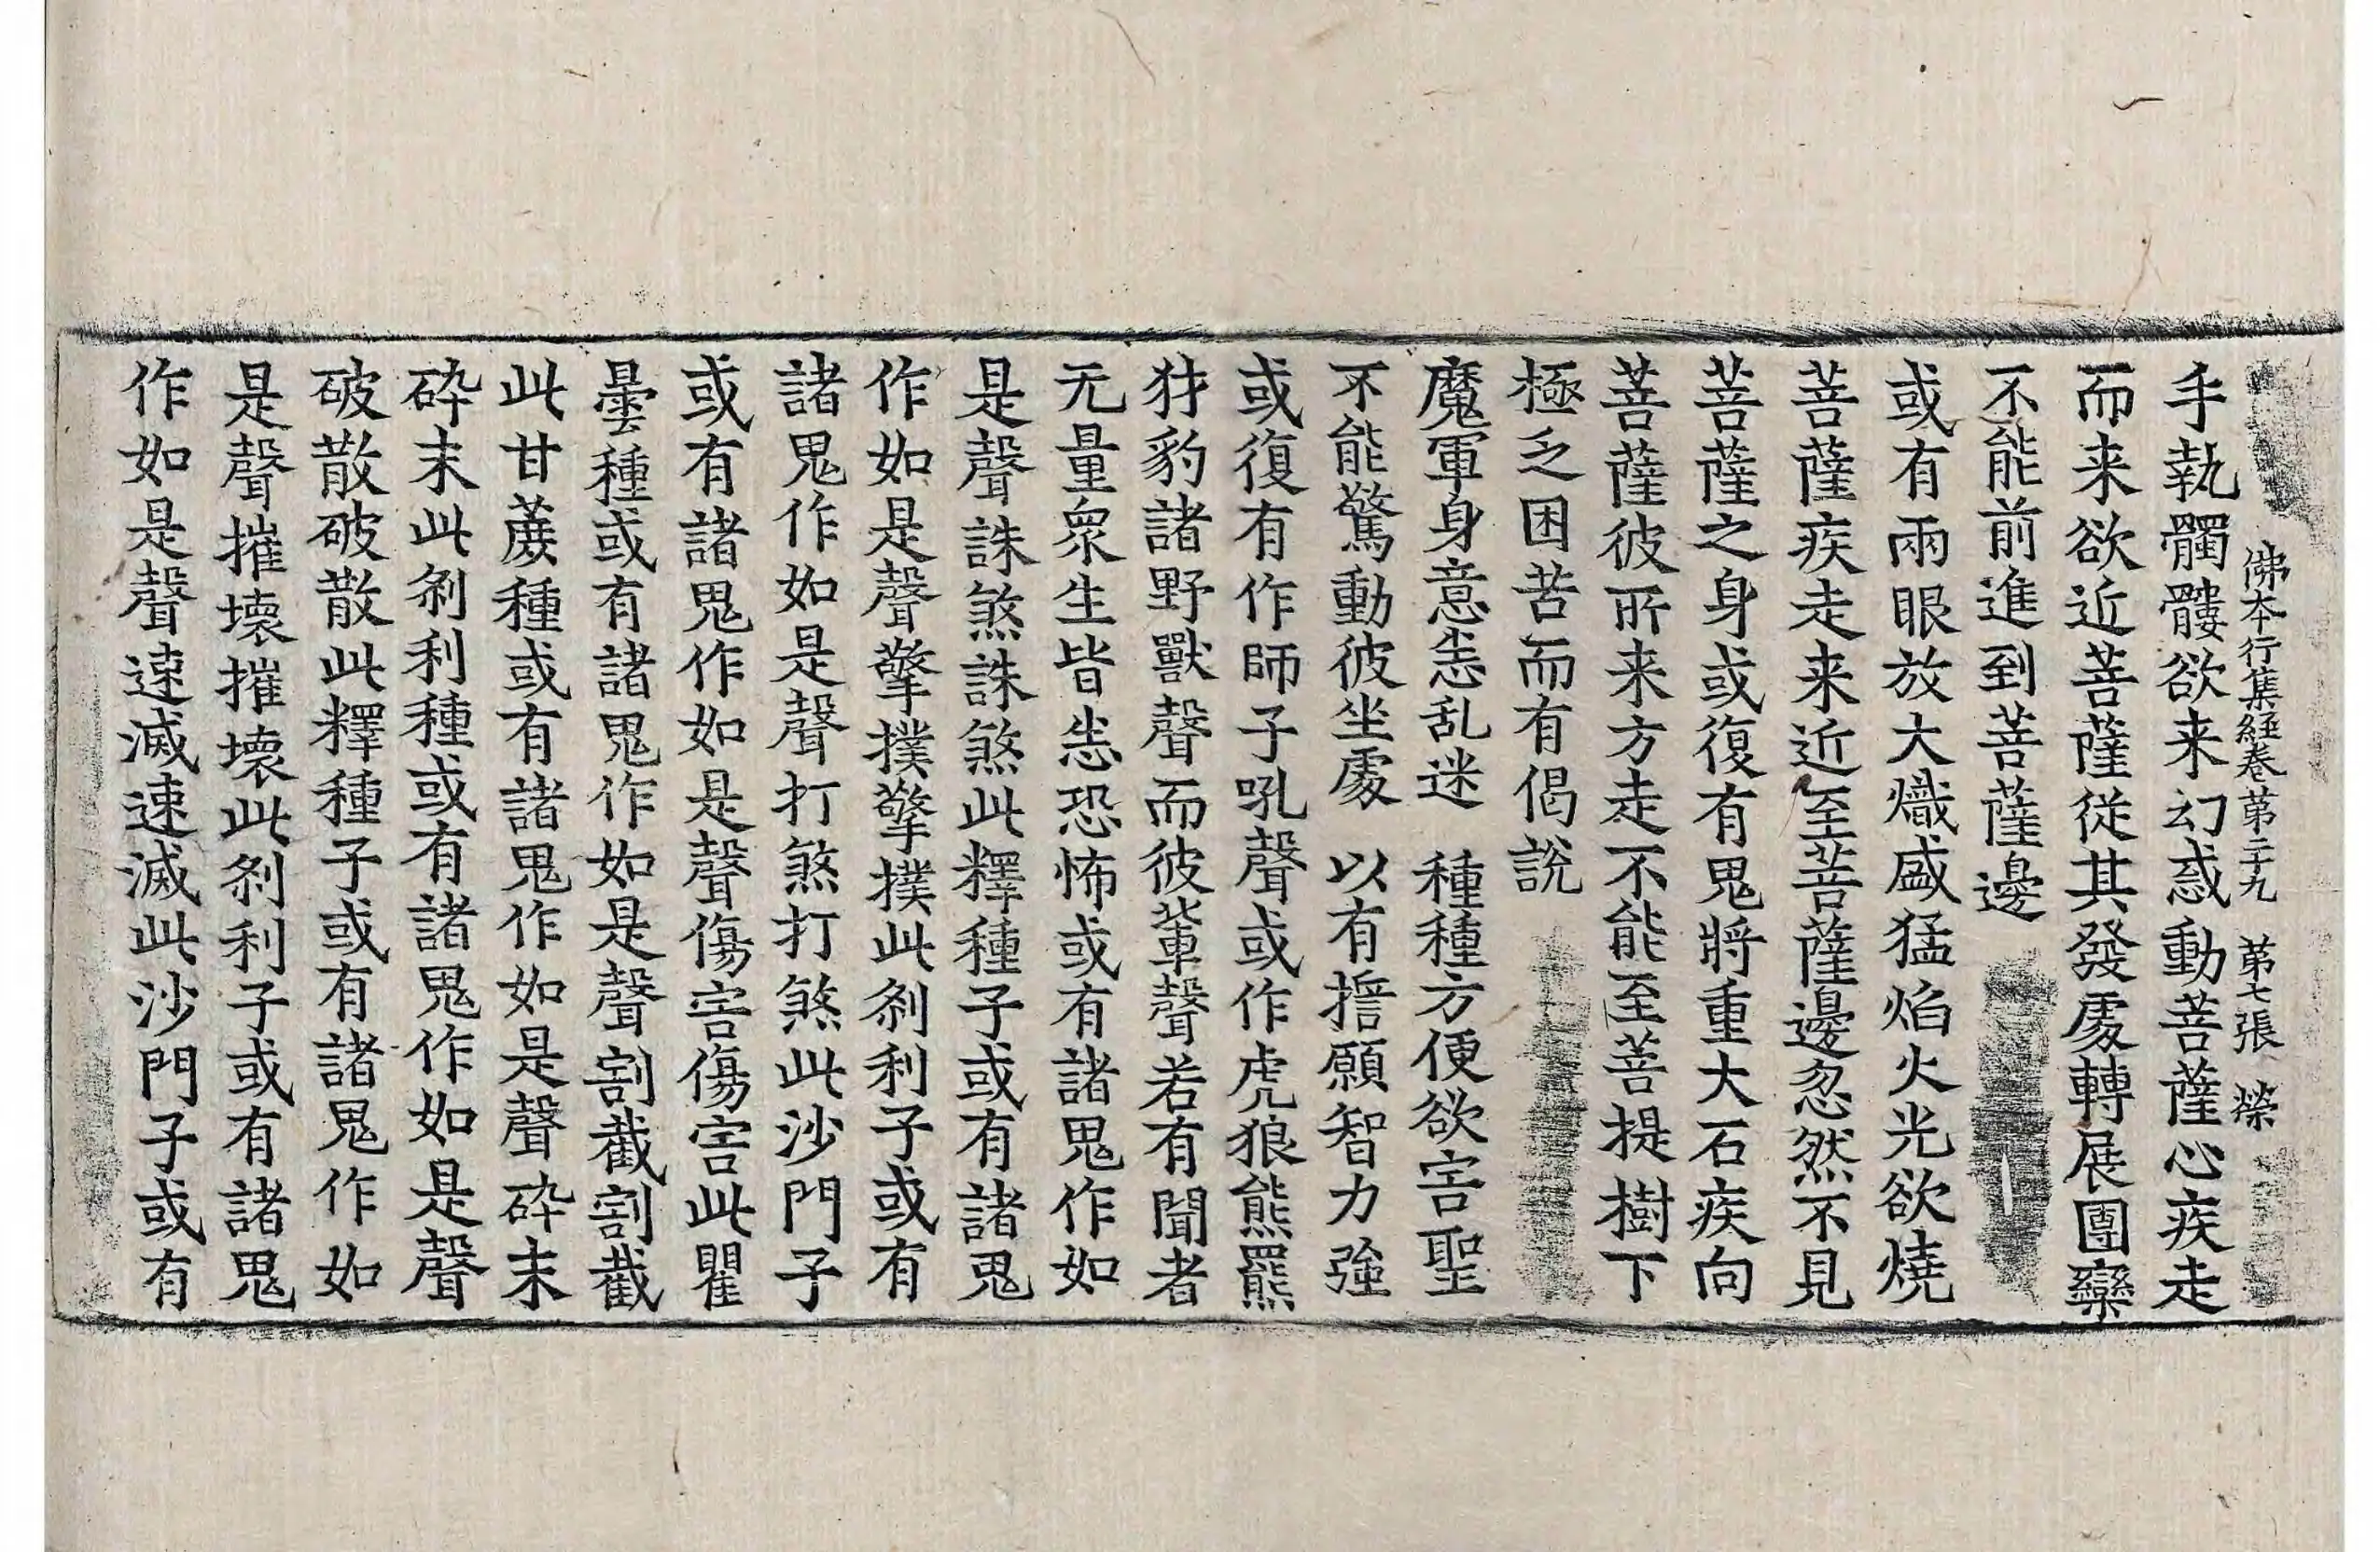 佛本行集經卷第二十九　第七張　榮
手執髑髏欲来幻惑動菩薩心疾走
而来欲近菩薩從其發處轉展團欒
不能前進到菩薩邊
或有兩眼放大熾盛猛焰火光欲燒
菩薩疾走来近至菩薩邊忽然不見
菩薩之身或復有鬼將重大石疾向
菩薩彼所来方走不能至菩提樹下
極乏困苦而有偈說
魔軍身意恚乱迷　種種方便欲害聖
不能驚動彼坐處　以有誓願智力強
或復有作師子吼聲或作虎狼熊羆
犲豹諸野獸聲而彼輩聲若有聞者
无量眾生皆恚恐怖或有諸鬼作如
是聲誅煞誅煞此釋種子或有諸鬼
作如是聲擎撲擎撲此剎利子或有
諸鬼作如是聲打煞打煞此沙門子
或有諸鬼作如是聲傷害傷害此瞿
曇種或有諸鬼作如是聲割截割截
此甘蔗種或有諸鬼作如是聲碎末
碎末此剎利種或有諸鬼作如是聲
破散破散此釋種子或有諸鬼作如
是聲摧壞摧壞此剎利子或有諸鬼
作如是聲速滅速滅此沙門子或有